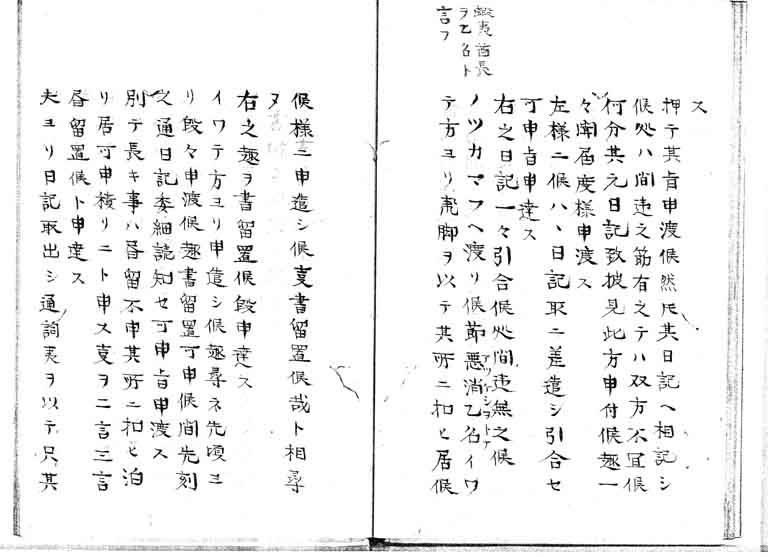 ス
押テ其旨申渡候然㪽其日記ヘ相記シ
候処ハ間違之筋有之テハ双方不宜候
何分其元日記致披見此方申付候趣一
々深届度様申渡ス
左様ニ候ハヽ日記取ニ差遣シ引合セ
可申旨申達ス
右之日記一々引合候処間違無之候
ノツカマフヘ渡リ候節悪消乙名イワ
テ方ヨリ飛脚ヲ以テ其所ニ扣ヒ居候
蝦夷酋長
ヲ乙名ト
言フ
候様ニ申遣シ候叓書留置候哉ト相尋
ヌ
右之趣ヲ書留置候段申達ス
イワテ方ヨリ申遣シ候趣尋ネ先頃ヨ
リ段々申渡候趣書留置可申候間先刻
之通日記委細読知セ可申旨申渡ス
別テ長キ事ハ書留不申其所ニ扣ヒ泊
リ居可申積リニト申ス叓ヲ二言三言
書留置候ト申達ス
夫ヨリ日記取出シ通詞夷ヲ以テ只其